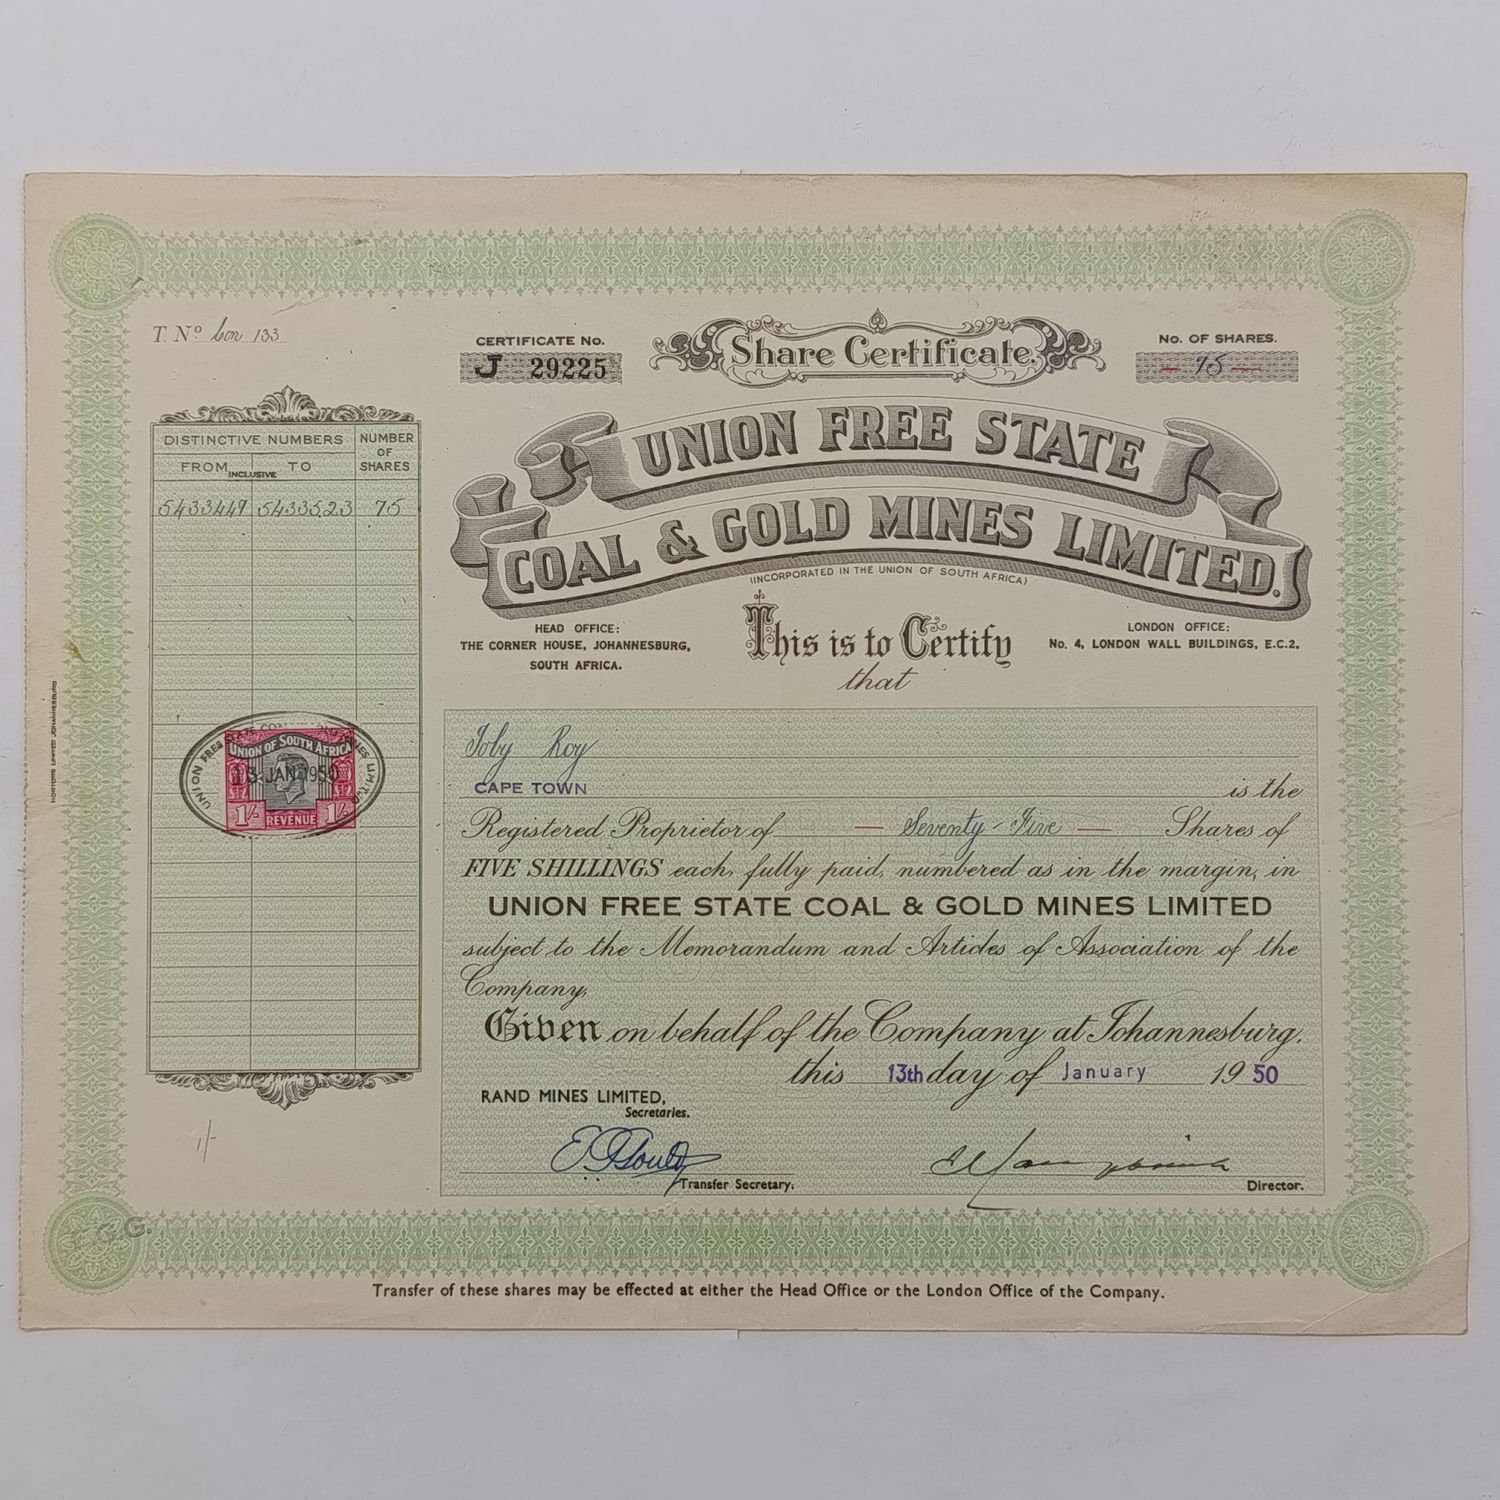 T. No. Con 133
CERTIFICATE No.
J 29225
Share Certificate.
No. OF SHARES.
— 75 —
UNION FREE STATE
COAL & GOLD MINES LIMITED.
(INCORPORATED IN THE UNION OF SOUTH AFRICA)
HEAD OFFICE:
THE CORNER HOUSE, JOHANNESBURG,
SOUTH AFRICA.
This is to Certify
that
LONDON OFFICE:
No. 4, LONDON WALL BUILDINGS, E.C.2.
DISTINCTIVE NUMBERS
FROM INCLUSIVE TO
NUMBER
OF
SHARES
5433449 5433523 75
UNION FREE STATE COAL MINES LIMITED
UNION OF SOUTH AFRICA
13 JAN 1950
1/- REVENUE 1/-
Toby Roy
CAPE TOWN is the
Registered Proprietor of — Seventy-Five — Shares of
FIVE SHILLINGS each, fully paid, numbered as in the margin, in
UNION FREE STATE COAL & GOLD MINES LIMITED
subject to the Memorandum and Articles of Association of the
Company.
Given on behalf of the Company at Johannesburg,
this 13th day of January 1950
RAND MINES LIMITED,
Secretaries.
Transfer Secretary.
Director.
1/-
G.G.
HORTORS LIMITED JOHANNESBURG
Transfer of these shares may be effected at either the Head Office or the London Office of the Company.